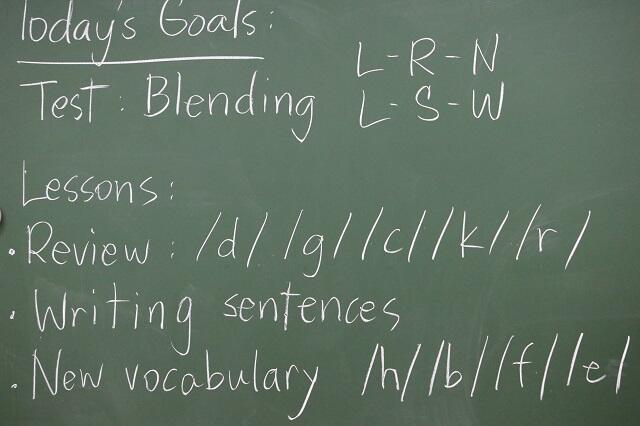 Today's Goals:
Test: Blending L-R-N
L-S-W
Lessons:
• Review: /d/ /g/ /c/ /k/ /r/
• Writing sentences
• New vocabulary /h/ /b/ /f/ /e/